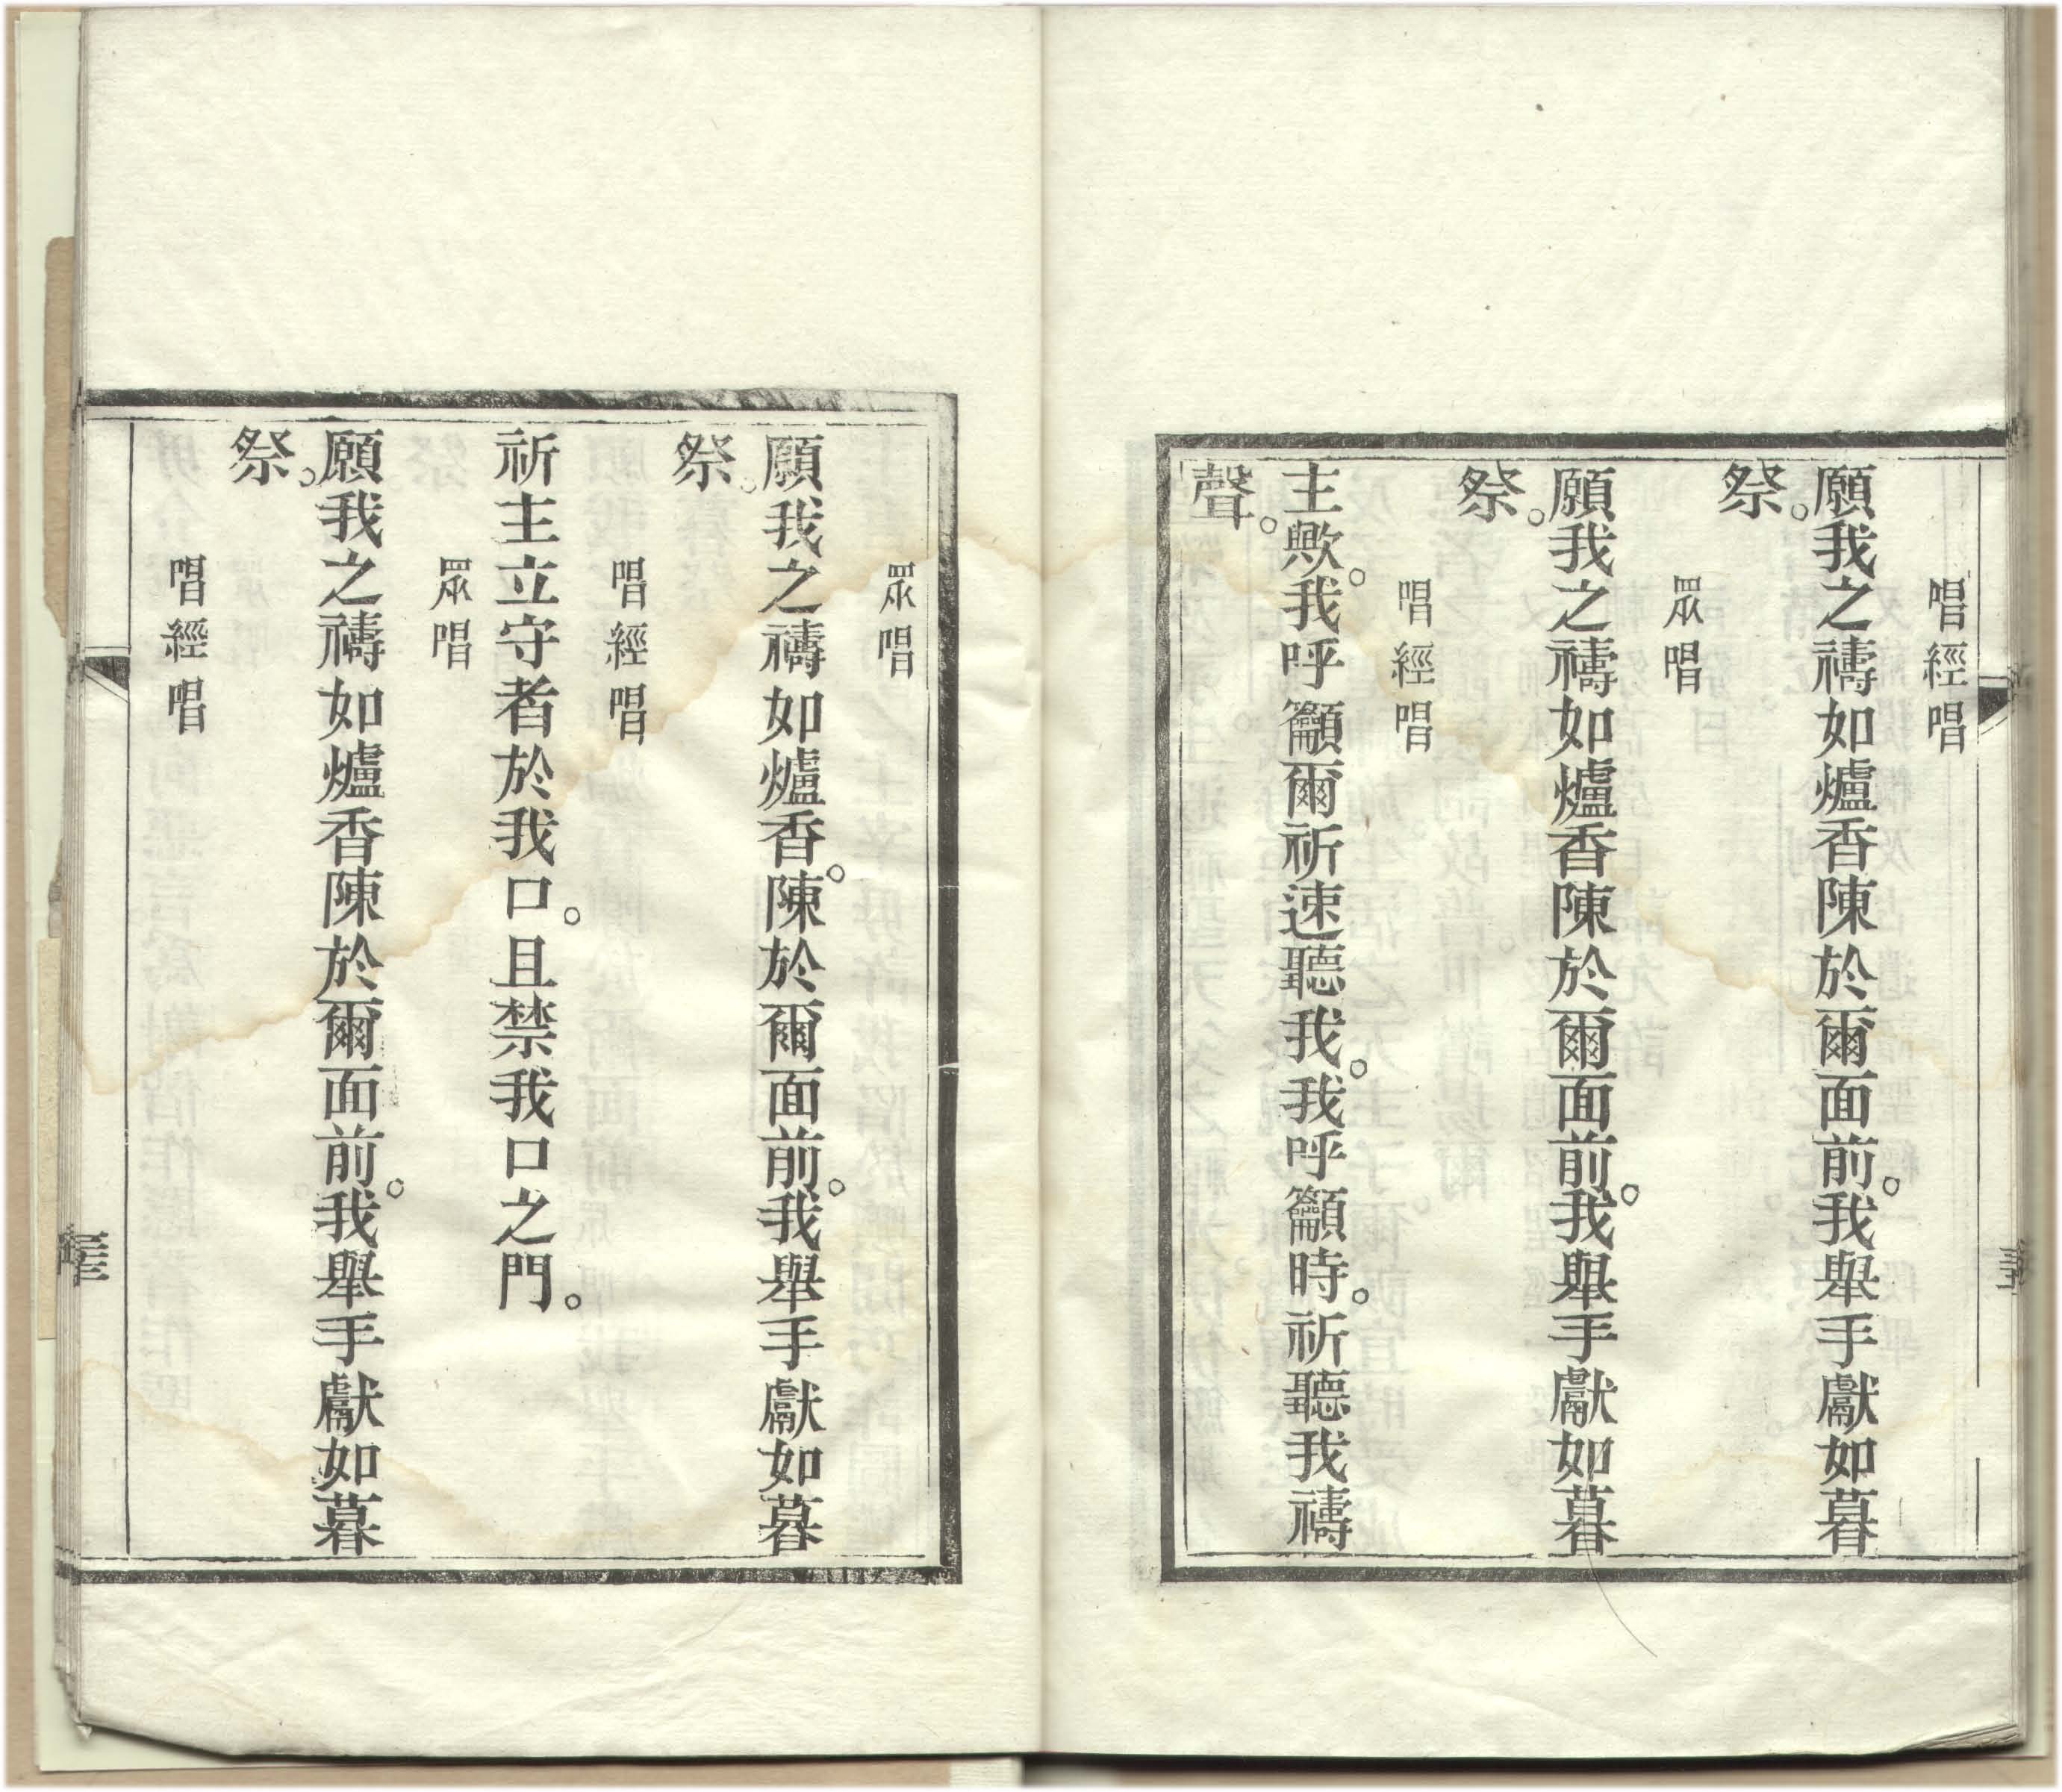 唱經唱
願我之禱如爐香陳於爾面前。我舉手獻如暮
祭。
眾唱
願我之禱如爐香陳於爾面前。我舉手獻如暮
祭。
唱經唱
主歟。我呼籲爾祈速聽我。我呼籲時。祈聽我禱
聲。
眾唱
願我之禱如爐香。陳於爾面前。我舉手獻如暮
祭。
唱經唱
祈主立守者於我口。且禁我口之門。
眾唱
願我之禱如爐香陳於爾面前。我舉手獻如暮
祭。
唱經唱